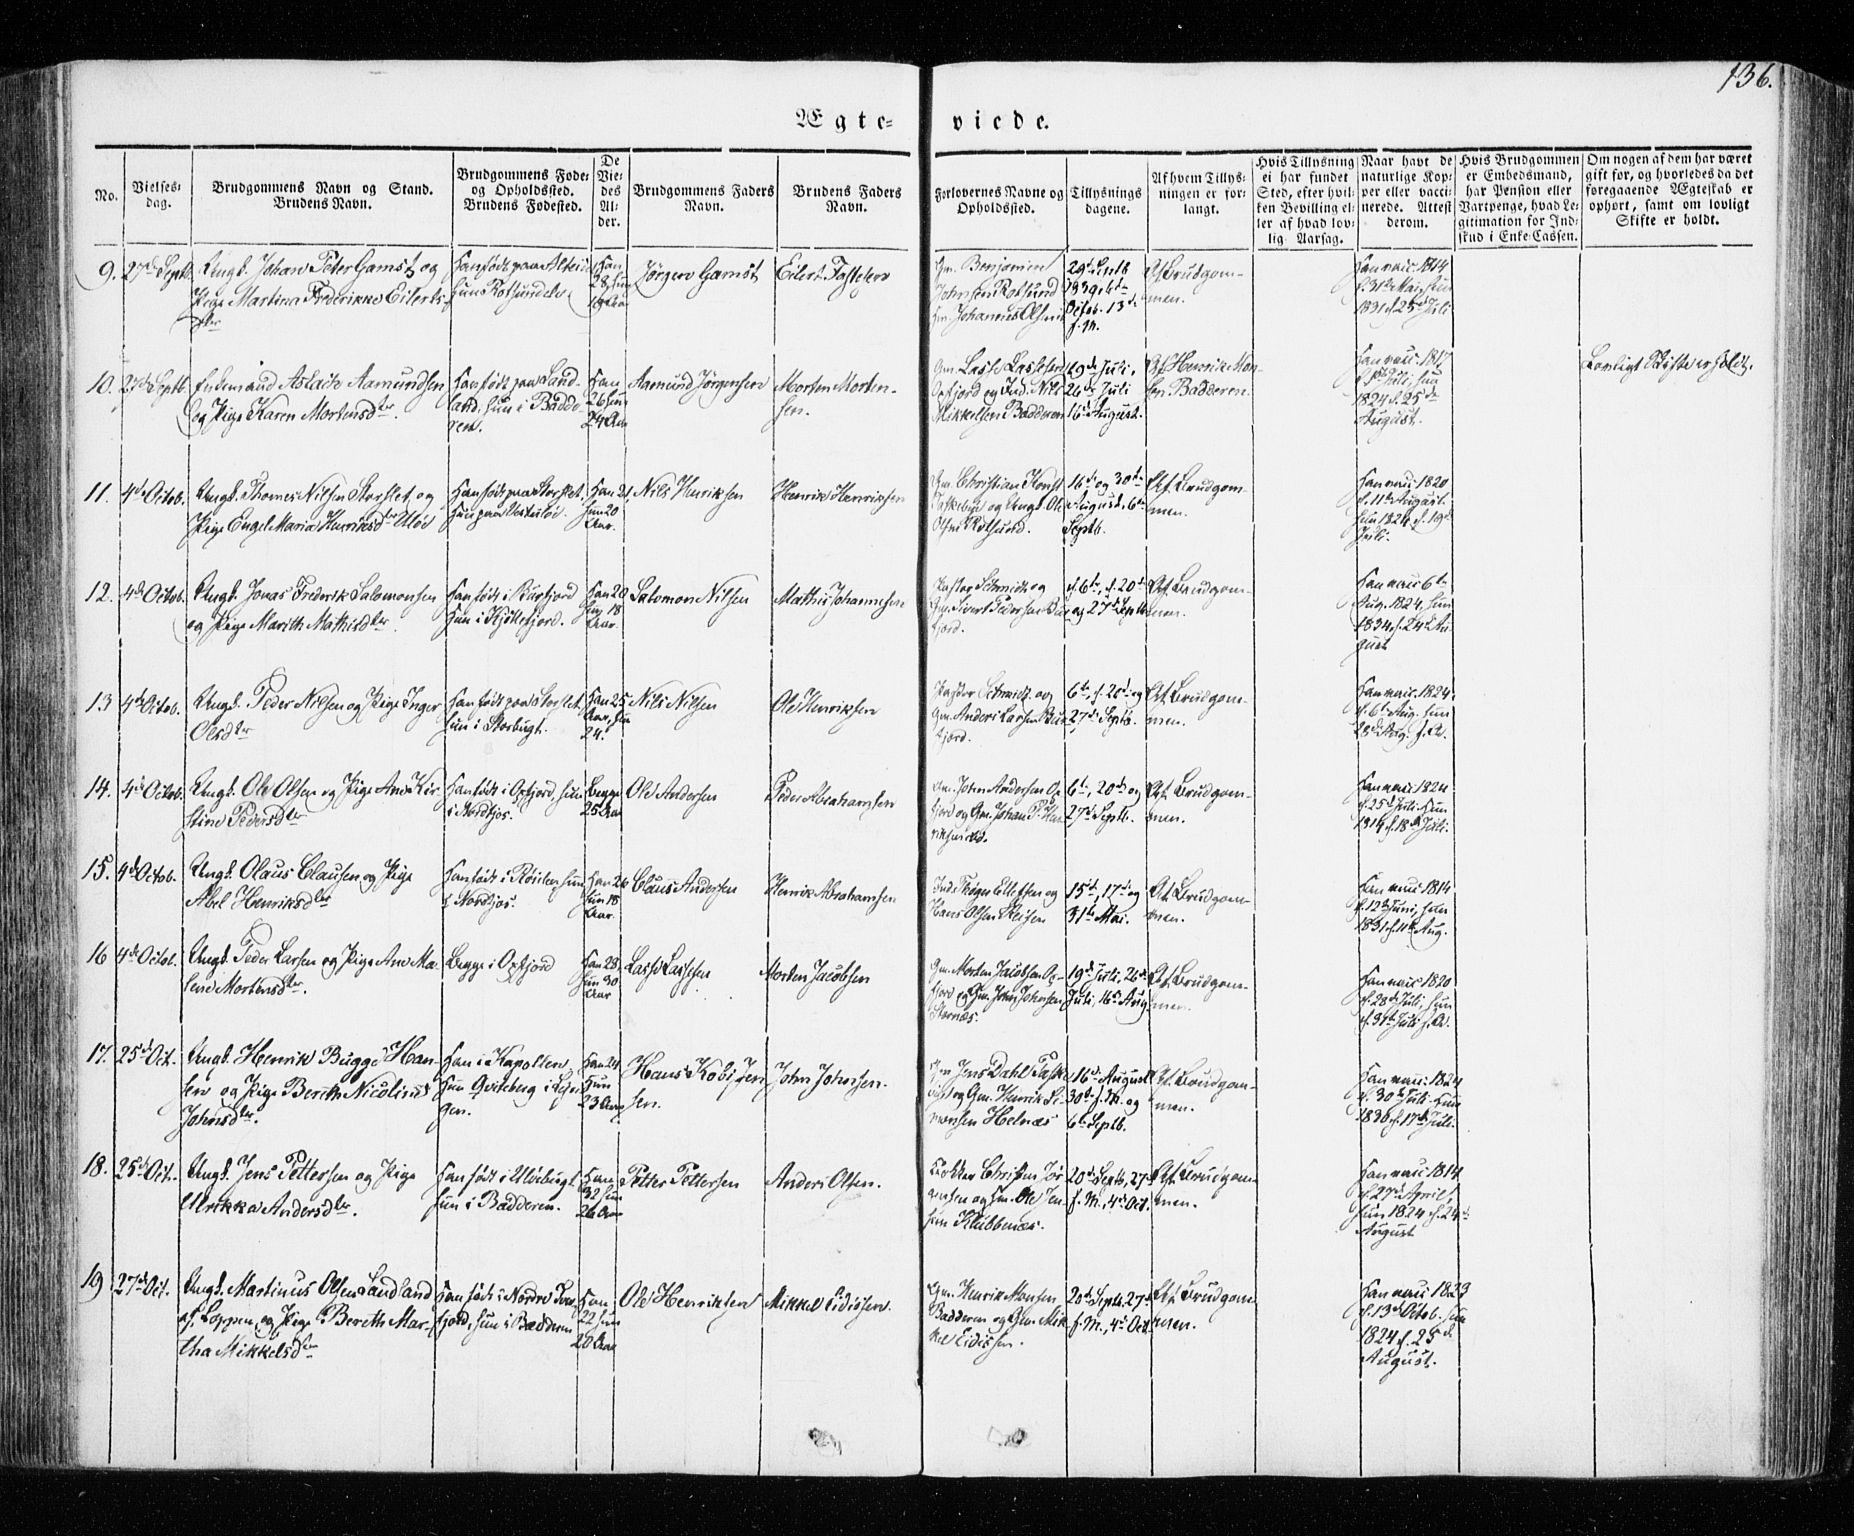 136.
Ægte-
viede.
No.
Vielses-
dag.
Brudgommens Navn og Stand.
Brudens Navn.
Brudgommens Føde-
og Opholdssted.
Brudens Fødested.
De
Vie-
des
Al-
der.
Brudgommens Faders
Navn.
Brudens Faders
Navn.
Forlovernes Navne og
Opholdssted.
Tillysnings
dagene.
Af hvem Tillys-
ningen er for-
langt.
Hvis Tillysning
ei har fundet
Sted, efter hvil-
ken Bevilling el-
ler af hvad lov-
lig Aarsag.
Naar havt de
naturlige Kop-
per eller vacci-
nerede. Attest
derom.
Hvis Brudgommen
er Embedsmand,
har Pension eller
Vartpenge, hvad Le-
gitimation for Ind-
skud i Enke-Cassen.
Om nogen af dem har været
gift før, og hvorledes da det
foregaaende Ægteskab er
ophørt, samt om lovligt
Skifte er holdt.
9. 27de Septb.
Ungk. Johan Peter Gamst og
Pige Martine Frederikke Eilerts-
dtr
Han
28, hun
Jørgen Gamst
Eilert
Gm. Benjamin
Johnsen Rotsund
Gm. Johannes Olsen
29de Septb
1839, 6te
Octob. 13de
s. M.
Af Brudgom-
men.
Han vacc. 1814
d. 31te Mai, hun
1831 d. 25de Juli
10. 27de Septb
Enkemand Aslach Aamundsen
og Pige Karen Mortensdtr.
Han født paa Sand-
land, hun i Badde-
ren.
Han
26 hun
24 Aar
Aamund Jørgensen
Morten Morten-
sen.
Gm. Lasse Lassesen
Oxfjord og Ind. Nils
Mikkelsen Badderen
19de Juli,
26de Juli
16de August.
Af Henrik Mon-
sen Badderen.
Han vacc. 1817
Juli, hun
1824 d. 25de
August.
Lovligt Skifte er holdt.
11. 4de Octob.
Ungk. Thomas Nilsen Storslet og
Pige Engel Maria Henriksdtr Uløe
Han født paa Storslet,
hun paa
Han 21,
hun 20
Aar.
Nils Henriksen
Henrik Henriksen
Gm. Christian
og Ungk. Ole
Olsen Rotsund.
16de og 30te
August, 6te
Septb.
Af Brudgom-
men.
Han vacc. 1820
d. 11te August.
hun 1824 d. 19de
Juli.
12. 4de Octob.
Ungk. Jonas Frederik Salomonsen
og Pige Marith Mathisdtr.
Han født i Burfjord
hun i Kjøllefjord.
Han 20
hun 18
Aar.
Salomon Nilsen
Mathis Johannesen
Pastor Schmidt og
Gm. Sivert Pedersen Bur-
fjord.
d. 6te, d. 20de
og 27de Septb
Af Brudgom-
men.
Han vacc. 6te
Aug. 1824, hun
1834 d. 24de Au-
gust
13 4de Octob.
Ungk. Peder Nilsen og Pige Inger
Olsdtr
Han født paa Storslet
hun i Storbugt.
Han 25
Aar, hun
24.
Nils Nilsen
Ole Henriksen
Pastor Schmidt og
Gm. Anders Larsen Bur-
fjord.
6te, d. 20de og
27de Septb.
Af Brudgom-
men.
Han vacc. 1824
d. 6te Aug. hun
28de Aug. s. A.
14. 4de Octob.
Ungk. Ole Olsen og Pige Ane Kir-
stine Pedersdtr
Han født i Oxfjord, hun
i Nordkjos.
Begge
25 Aar
Ole Andersen
Peder Abrahamsen
Gm. John Andersen Ox-
fjord og Gm. Johan P. Hen-
6te, 20de og
27de Septb.
Af Brudgom-
men.
Han vacc. 1824
d. 25de Juli Hun
1814 d. 18de Juli.
15. 4de Octob.
Ungk. Olaus Clausen og Pige
Abel Henriksdtr
Han født i
hun
i Nordkjos.
Han 26
hun 18
Aar.
Claus Andersen
Henrik Abrahamsen
Ind. Thøger Ellefsen og
Hans Olsen Reisen
15de, 17de og
31te Mai.
Af Brudgom-
men.
Han vacc. 1814
d. 12te Juni, hun
1831 d. 11te Aug.
16 4de Octob.
Ungk. Peder Larsen og Pige Ane Ma-
lene Mortensdtr.
Begge i Oxfjord
Han 28,
hun 30
Aar
Lasse Lassesen
Morten Jacobsen
Gm. Morten Jacobsen Ox-
fjord og Gm. John Johnsen
19de Juli, 26de
Juli, 16de Aug
Af Brudgom-
men.
Han vacc. 1820
d. 28de Juli, hun
d. 31te Juli s. A.
17. 25de Oct.
Ungk. Henrik Bugge Han-
sen og Pige Bereth Nicoline
Johnsdtr.
Han i Kapollen
Hun Qvitebeeg i Lyn-
gen.
Han 24
Hun
23 Aar
Hans Kobi Jen-
sen.
John Johnsen.
Gm Jens Dahl
og Gm. Henrik Si-
monsen Helnæs
16de August
30te s. M. og
6te Septb.
Af Brudgom-
men.
Han vacc. 1824
d. 30te Juli. Hun
1836 d. 17de Juli.
18. 25de Oct.
Ungk. Jens Pettersen og Pige
Ulrikka Andersdtr.
Han født i Uløebugt,
hun i Badderen.
Han
32 hun
26 Aar
Petter Pettersen
Anders Olsen.
Christen Jør-
gensen og Gm. Ole Jen-
sen Klubbenæs.
20de Septb, 27de
s. M., 4de Oct.
Af Brudgom-
men.
Han vacc. 1814
d. 27de April,
hun 1824 d. 24de
August
19 27de Oct.
Ungk. Martinus Olsen Sandland
af Loppen og Pige Bereth Mar-
tha Mikkelsdtr
Han født i Nordre
fjord, hun i Badderen
Han
22 hun
20 Aar
Ole Henriksen
Mikkel Eidissen.
Gm. Henrik Monsen
Badderen og Gm. Mik-
kel Eidissen.
20de Septb, 27de
s. M., 4de Oct.
Af Brudgom-
men.
Han vacc. 1823
d. 13de Octob. hun
1824 d. 25de
August.